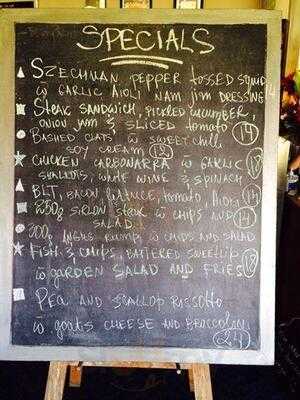 SPECIALS
SZECHUAN PEPPER TOSSED SQUID 14
w GARLIC AIOLI, NAM JIM DRESSING
STEAK SANDWICH, PICKLED CUCUMBER,
ONION JAM & SLICED TOMATO 14
BASHED w SWEET CHILLI
SOUR CREAM
CHICKEN CARBONARRA w GARLIC 18
SHALLOTS, WHITE WINE & SPINACH
BLT, BACON, LETTUCE, TOMATO, AIOLI 14
250g SIRLOIN STEAK w CHIPS AND 14
SALAD
300g ANGUS RUMP w CHIPS AND SALAD
FISH & CHIPS, BATTERED
w GARDEN SALAD AND FRIES 18
PEA AND SCALLOP RISSOTTO
w GOATS CHEESE AND BROCCOLINI
24